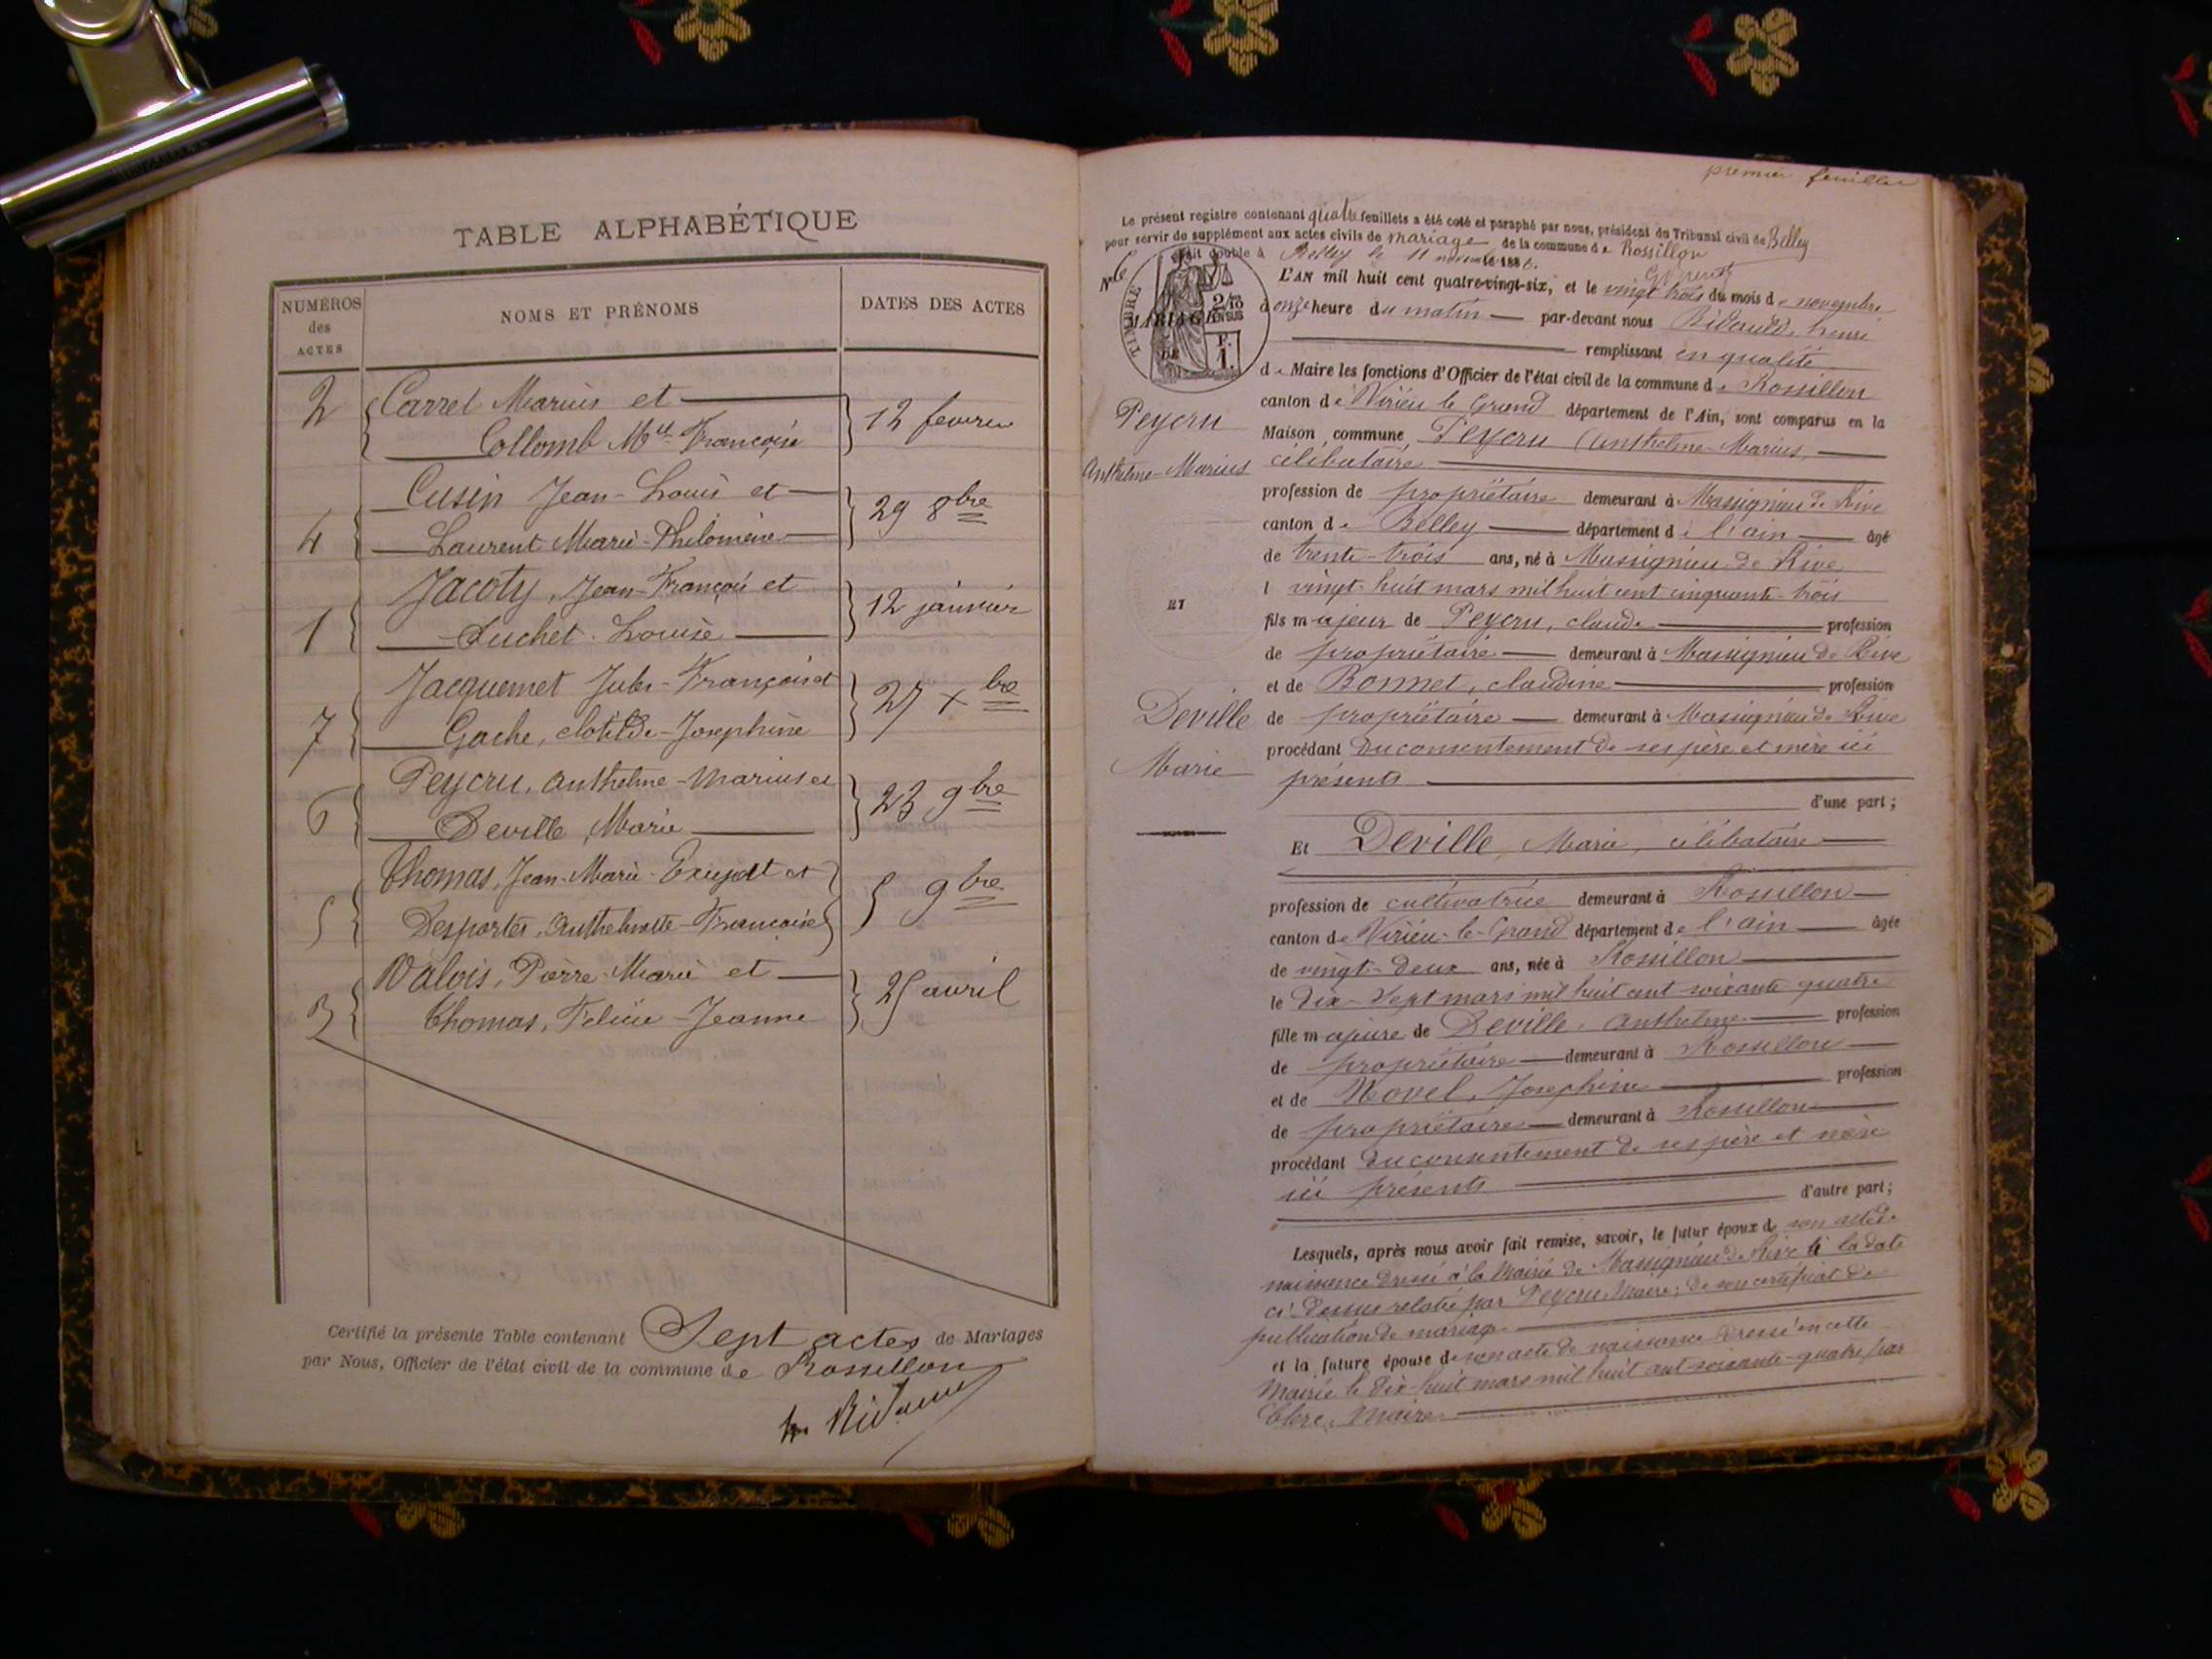 TABLE ALPHABÉTIQUE
NUMÉROS des ACTES
NOMS ET PRÉNOMS
DATES DES ACTES
2 Carret Marius et
Collomb Mie Françoise
12 fevrier
Cusin Jean-Louis et
4 Laurent Marie-Philomène
29 8bre
Jacoty, Jean-François et
1 Luchet Louise
12 janvier
Jacquemet Jules-François et
7 Gache, clotilde-Josephine
27 Xbre
Peycru, Anthelme-Marius et
6 Deville, Marie
23 9bre
Thomas, Jean-Marie- et
5 Desportes, Anthelmette-Françoise
5 9bre
Valois, Pierre-Marie et
3 Thomas, Felicie-Jeanne
25 avril
Certifié la présente Table contenant Sept actes de Mariages
par Nous, Officier de l'état civil de la commune de Rossillon
premier feuillet
Le présent registre contenant quatre feuillets a été coté et paraphé par nous, président du Tribunal civil de Belley
pour servir de supplément aux actes civils de mariage de la commune de Rossillon
Fait double à Belley le 11 novembre 1886.
N° 6
TIMBRE
MARIAGE
DE
2/10 EN SUS
F. 1.
L'AN mil huit cent quatre-vingt-six, et le vingt-trois du mois de novembre
à onze heure du matin par-devant nous Bidauld, henri
remplissant en qualité
de Maire les fonctions d'Officier de l'état civil de la commune de Rossillon
canton de Virieu le Grand département de l'Ain, sont comparus en la
Maison commune, Peycru Anthelme-Marius,
célibataire
Peycru
Anthelme-Marius
profession de propriétaire demeurant à Massignieu de Rive
canton de Belley département de l'ain âgé
de trente-trois ans, né à Massignieu de Rive
l vingt-huit mars mil huit cent cinquante-trois
ET
fils majeur de Peycru, claude profession
de propriétaire demeurant à Massignieu de Rive
et de Bonnet, claudine profession
Deville
Marie
de propriétaire demeurant à Massignieu de Rive
procédant du consentement de ses père et mère ici
présents
d'une part;
Et Deville, Marie, célibataire
profession de cultivatrice demeurant à Rossillon
canton de Virieu-le-Grand département de l'ain âgée
de vingt-deux ans, née à Rossillon
le dix-sept mars mil huit cent soixante quatre
fille majeure de Deville Anthelme profession
de propriétaire demeurant à Rossillon
et de Novel, Josephine profession
de propriétaire demeurant à Rossillon
procédant du consentement de ses père et mère
ici présents
d'autre part;
Lesquels, après nous avoir fait remise, savoir, le futur époux de son acte de
naissance dressé à la Mairie de Massignieu de Rive à la date
ci-dessus relatée par Peycru, Maire; de son certificat de
publication de mariage
et la future épouse de son acte de naissance dressé en cette
Mairie le dix-huit mars mil huit cent soixante-quatre par
Clerc, Maire